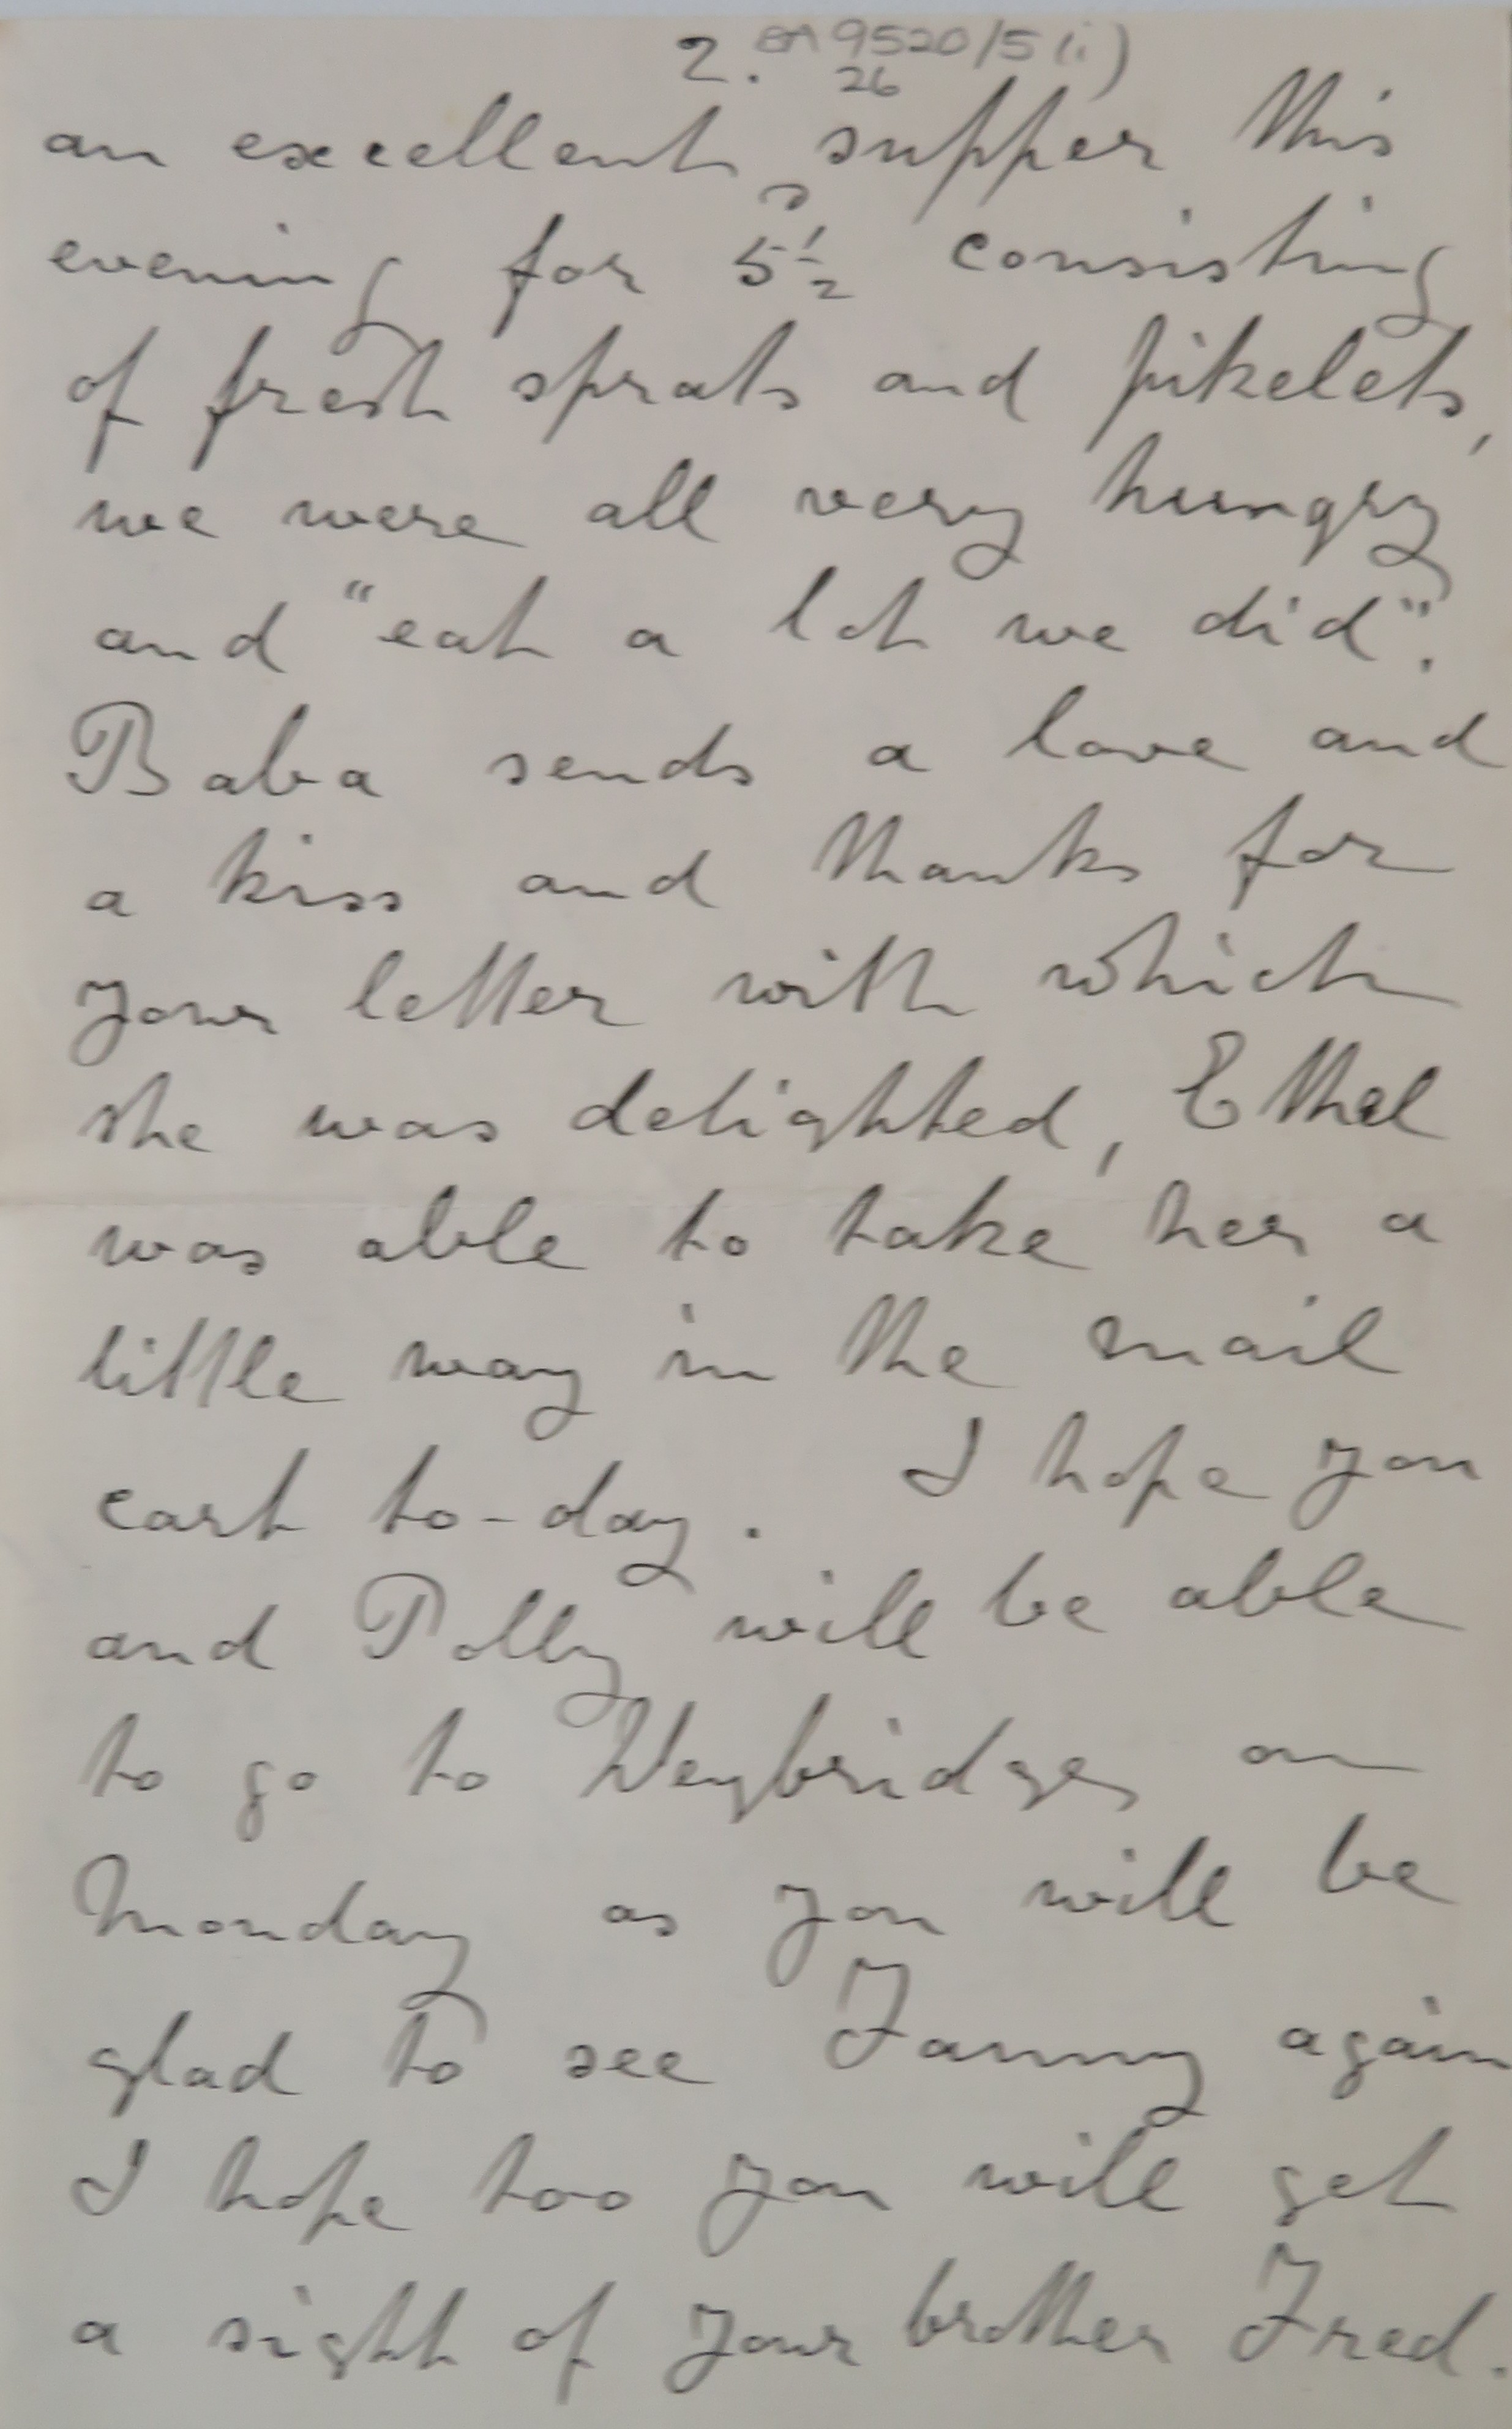 2. 9520/5(i)
26
an excellent supper this
evening for 5½ consisting
of fresh sprats and pikelets,
we were all very hungry
and "eat a lot we did".
Baba sends a love and
a kiss and thanks for
your letter with which
she was delighted, Ethel
was able to take her a
little way in the mail
cart to-day. I hope you
and Polly will be able
to go to Weybridge on
Monday as you will be
glad to see Fanny again
I hope too you will get
a sight of your brother Fred.